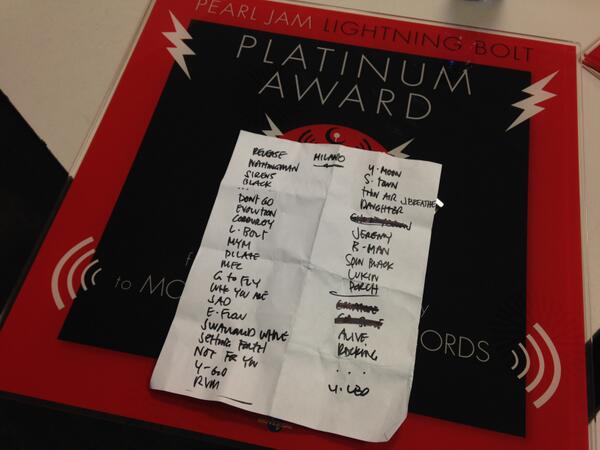 PEARL JAM LIGHTNING BOLT
PLATINUM
AWARD
MILANO
RELEASE
NOTHINGMAN
SIRENS
BLACK
...
DONT GO
EVOLUTION
CORDUROY
L. BOLT
MYM
DILATE
MFC
G to FLY
WHO YOU ARE
SAD
E. FLOW
SWALLOWED WHOLE
SETTING FORTH
NOT FOR YOU
Y-GO
RVM
Y. MOON
S. TOWN
THIN AIR J. BREATHE
DAUGHTER
JEREMY
B-MAN
SOON BLACK
LUKIN
PORCH
ALIVE
ROCKING
...
Y. LED
to MO
ORDS